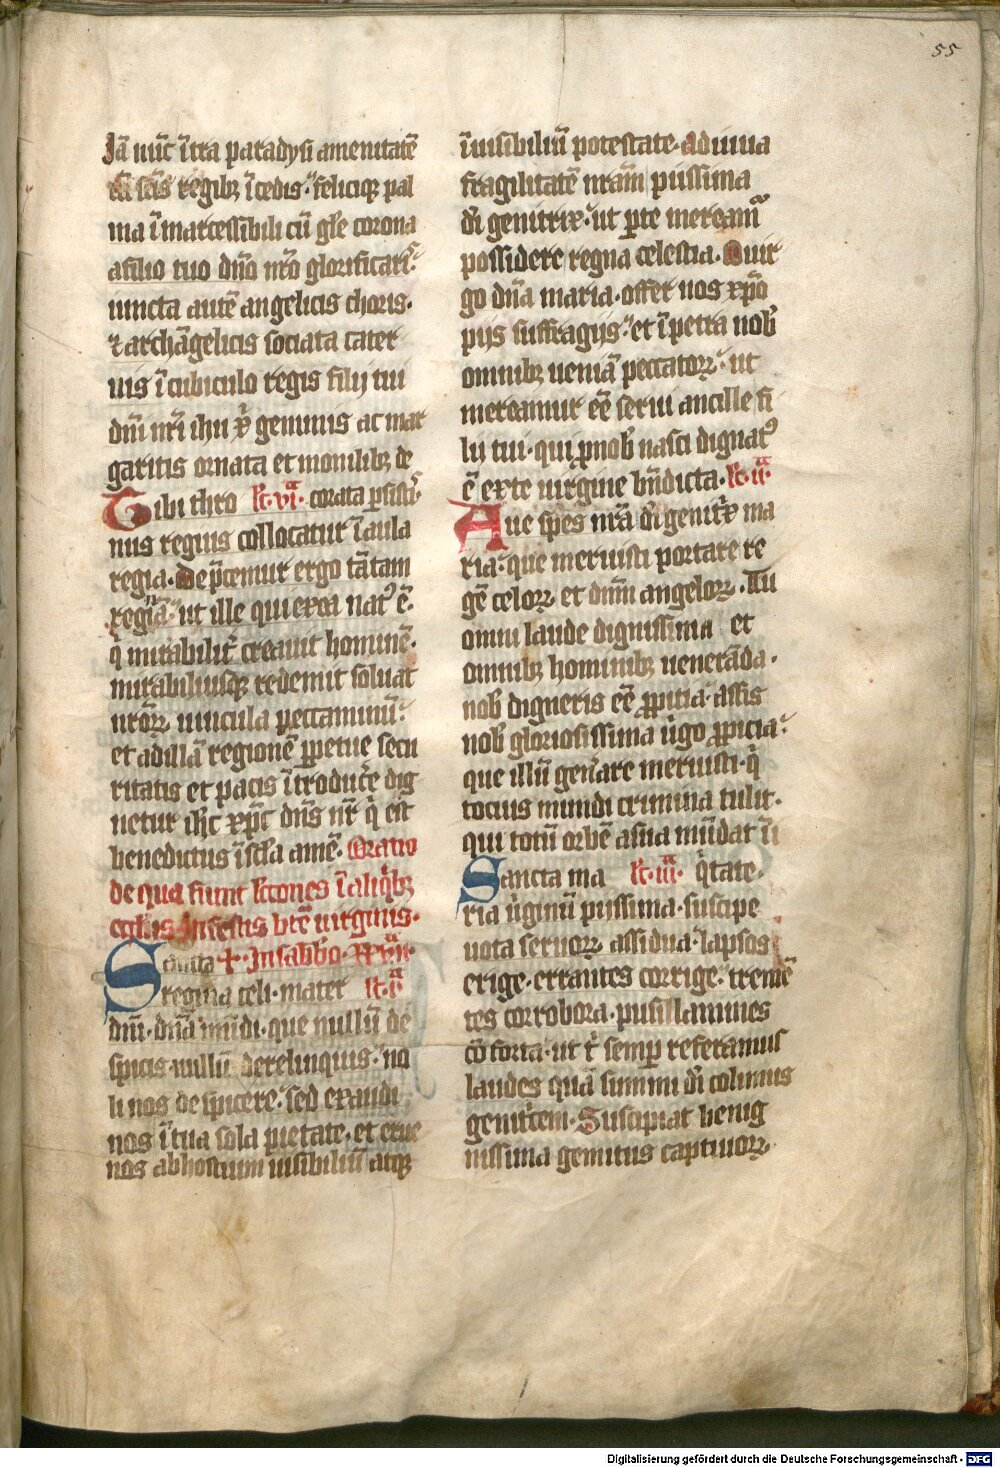 55
Jā nūc ītra paradysi amenitatē
cū scīs regibꝫ īcedis. felicicꝫ pal
ma īmarcessibili cū gl̄e corona
afilio tuo dn̄o nr̄o glorificari.
iuncta autē angelicis choris.
⁊ archāgelicis sociata cater
uis ī cubiculo regis filij tui
dn̄i nr̄i ihu xp̄i gemmis ac mar
garitis ornata et monilibꝫ de
Tibi thro lc̄. vi. corata p̱sisti.
nus regius collocatur ī aula
regia. Dep̄cemur ergo tātam
reginā. ut ille qui exea nat᾽ ē.
q̄ mirabilit̄ creauit hominē.
mirabiliusqꝫ redemit soluat
nr̄oꝝ uincula peccaminū.
et adillā regionē p̱petue secu
ritatis et pacis ītroduc̄e dig
netur ih̄c xp̄c dn̄s nr̄ q̄ est
benedictus ī sc̄la amē. Oratio
de qua fiunt lc̄cones ī aliqbꝫ
ecclīis. Infestis btē uirginis.
Sancta ✝. In sabb̄o.
regina celi. mater lc̄. i
dn̄i. dn̄a mūdi. que nullū de
spicis. nullū derelinquis. no
li nos despicere. sed exaudi
nos ī tua sola pietate. et erue
nos abhostium uisibiliū atqꝫ
īuisibiliū potestate. Adiuua
fragilitatē nr̄am piissima
dī genitrix. ut p̱ te meream᾽
possidere regna celestia. Ouir
go dn̄a maria. offer nos xp̄o
pijs suffragijs. et īpetra nob̄
omnibꝫ ueniā peccatoꝝ. ut
mereamur eē serui ancille fi
lij tui. qui p̱nob̄ nasci dignat᾽
ē exte uirgine bn̄dicta. lc̄. ii.
Aue spes nr̄a dī genitx̄ ma
ria. que meruisti portare re
gē celoꝝ. et dn̄m angeloꝝ. Tu
omni laude dignissima et
omnibꝫ hominibꝫ uenerāda.
nob̄ digneris eē p̱pitia. assis
nob̄ gloriosissima ūgo p̱picia.
que illū gen̄are meruisti. q̄
tocius mundi crimina tulit.
qui totū orbē asua mūdat īi
Sancta ma lc̄. iii. q̄tate.
ria ūginū piissima. suscipe
uota seruoꝝ assidua. lapsos
erige. errantes corrige. tremē
tes corrobora. pusillanimes
cōforta. ut t̄ semp̱ referamus
laudes quā summi dī colimus
genitc̄em. Suscipiat benig
nissima gemitus captiuoꝝ
Digitalisierung gefördert durch die Deutsche Forschungsgemeinschaft - DFG